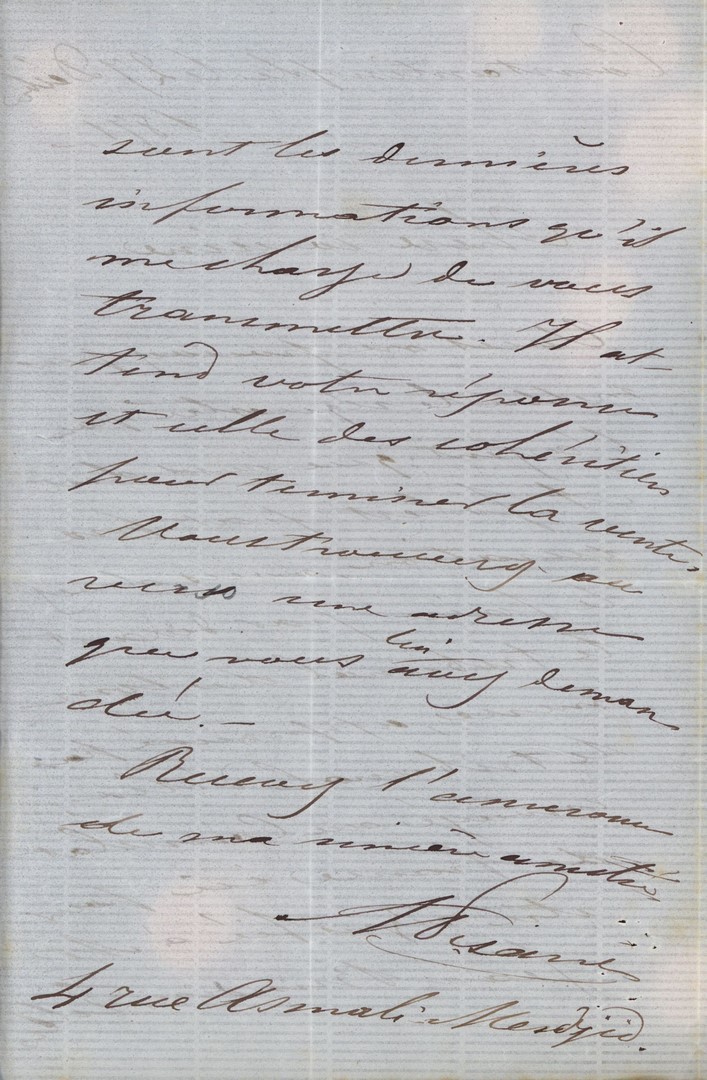 sont les dernières
informations qu'il
me charge de vous
transmettre. Il at-
tend votre réponse
et celle des cohéritiers
pour terminer la vente.
Vous trouverez au
une adresse
que vous lui avez deman
dée. —
Recevez l'assurance
de ma sincère amitié
4 rue Asmali-Mesdjid.